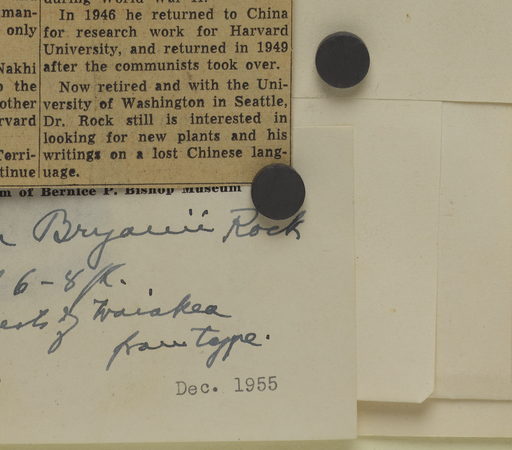 during World War II.
In 1946 he returned to China
for research work for Harvard
University, and returned in 1949
after the communists took over.
Now retired and with the Uni-
versity of Washington in Seattle,
Dr. Rock still is interested in
looking for new plants and his
writings on a lost Chinese lang-
uage.
man-
only
Nakhi
the
other
rvard
Terri-
tinue
m of Bernice P. Bishop Museum
Bryanii Rock
6-8 ft.
Waiakea
from type.
Dec. 1955